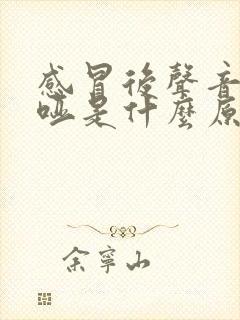 感冒後聲音
啞是什麼原
余寧山